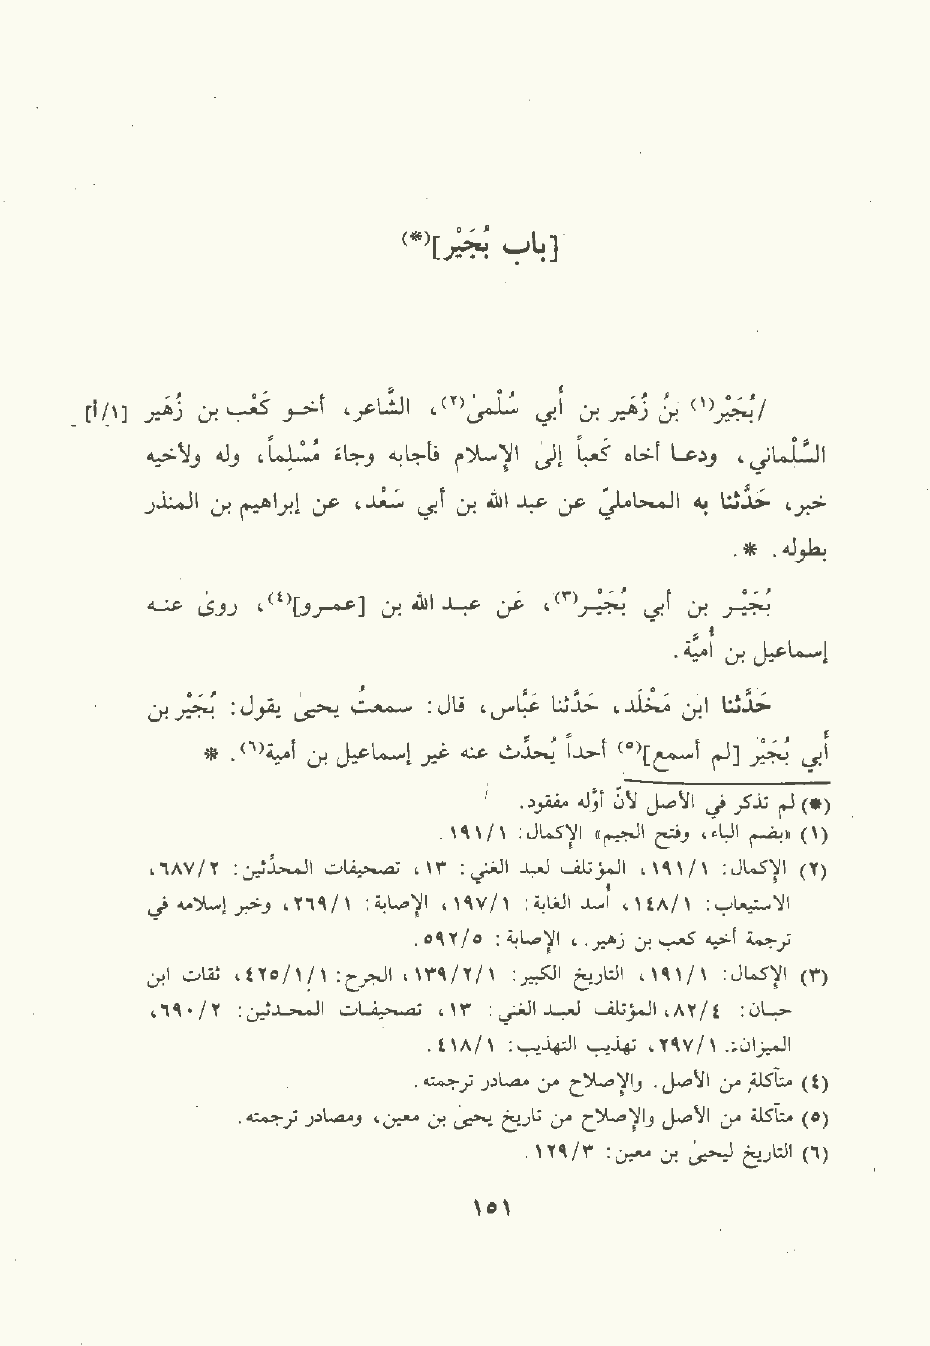 [باب بُجَيْر](*)
/بُجَيْر(١) بنُ زُهَير بن أبي سُلْمىٰ(٢)، الشَّاعر، أخـو كَعْب بن زُهَير [١/أ]
السَّلْماني، ودعـا أخاه كَعباً إلى الإسلام فأجابه وجاء مُسْلِماً، وله ولأخيه
خبر، حَدَّثنا به المحامليّ عن عبد الله بن أبي سَعْد، عن إبراهيم بن المنذر
بطوله. *.
بُجَيْـر بن أبي بُجَيْـر(٣)، عَن عبـد الله بن [عمـرو](٤)، روىٰ عنـه
إسماعيل بن أُميَّة.
حَدَّثنا ابن مَخْلَد، حَدَّثنا عَبَّاس، قال: سمعتُ يحيىٰ يقول: بُجَيْر بن
أبي بُجَيْر [لم أسمع](٥) أحداً يُحدِّث عنه غير إسماعيل بن أمية(٦). *
(*) لم تذكر في الأصل لأنّ أوّله مفقود.
(١) «بضم الباء، وفتح الجيم» الإكمال: ١/١٩١.
(٢) الإكمال: ١/١٩١، المؤتلف لعبد الغني: ١٣، تصحيفات المحدثين: ٢/٦٨٧،
الاستيعاب: ١/١٤٨، أسد الغابة: ١/١٩٧، الإصابة: ١/٢٦٩، وخبر إسلامه في
ترجمة أخيه كعب بن زهير.، الإصابة: ٥/٥٩٢.
(٣) الإكمال: ١/١٩١، التاريخ الكبير: ١/٢/١٣٩، الجرح: ١/١/٤٢٥، ثقات ابن
حبـان: ٤/٨٢، المؤتلف لعبـد الغني: ١٣، تصحيفـات المحـدثين: ٢/٦٩٠،
الميزان: ١/٢٩٧، تهذيب التهذيب: ١/٤١٨.
(٤) متآكلة من الأصل. والإصلاح من مصادر ترجمته.
(٥) متآكلة من الأصل والإصلاح من تاريخ يحيىٰ بن معين، ومصادر ترجمته.
(٦) التاريخ ليحيىٰ بن معين: ٣/١٢٩.
١٥١